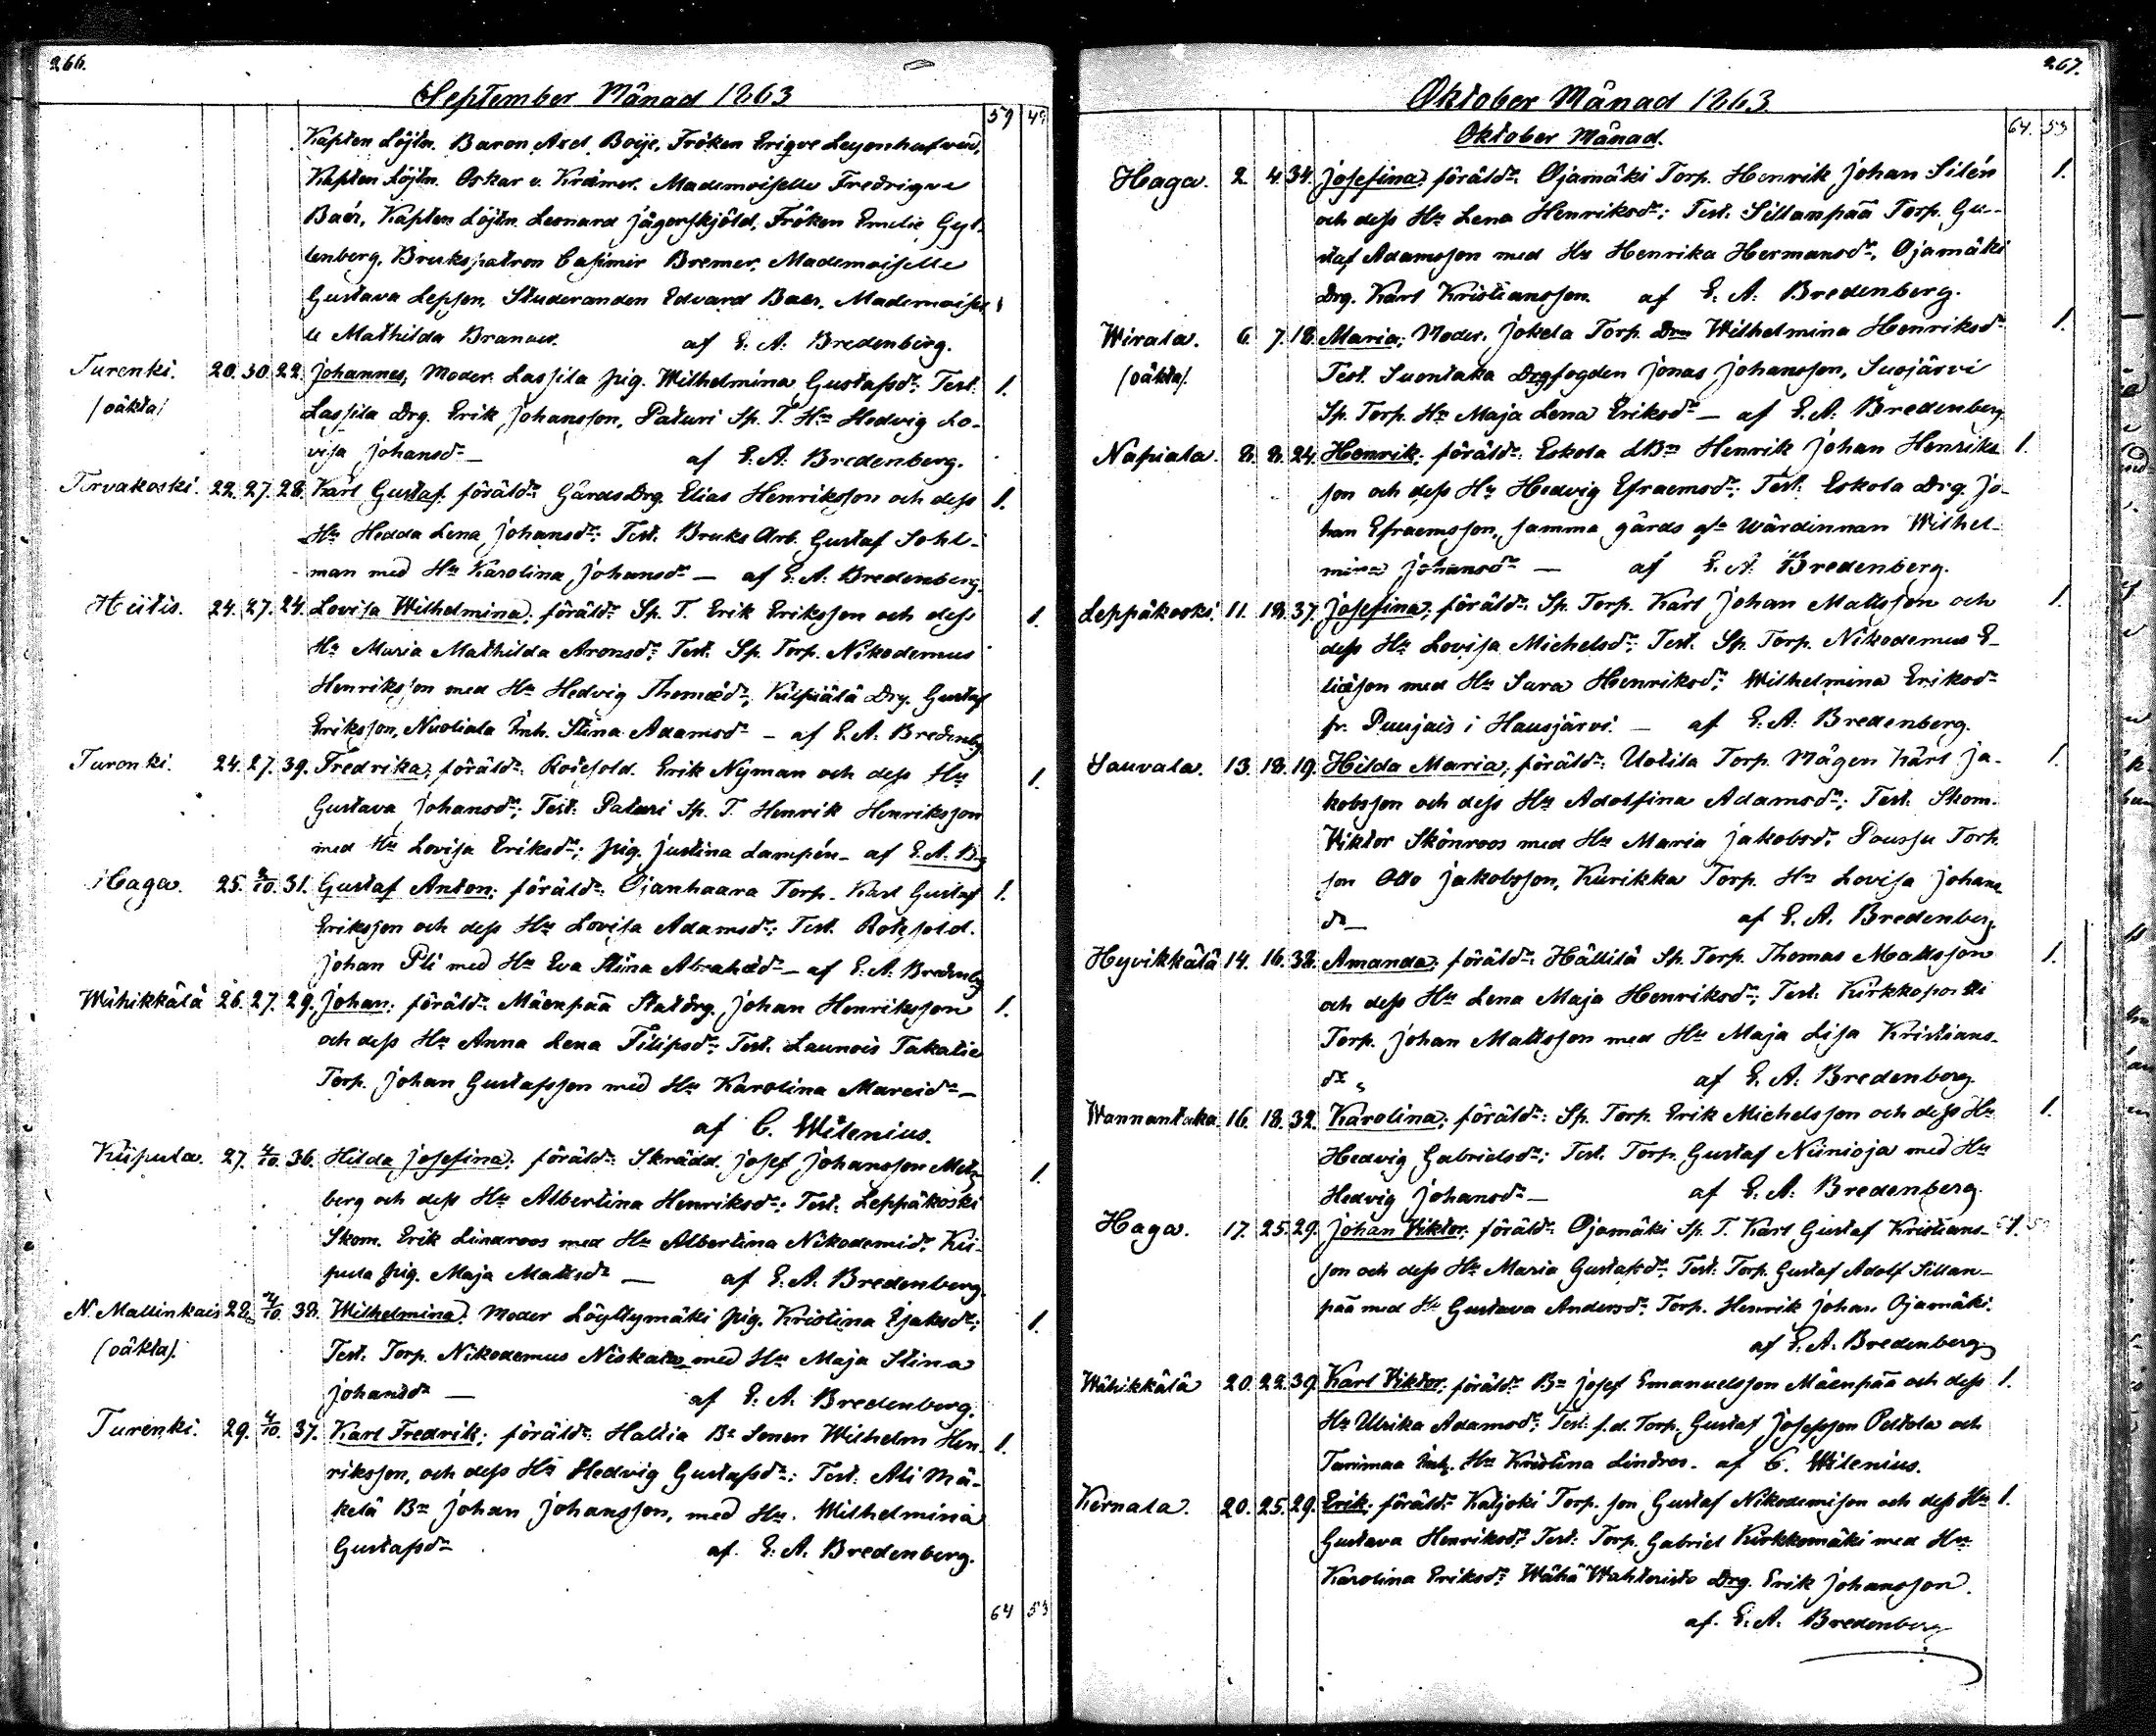 266.
September Månad 1863
59 49
Kapten Löjtn. Baron Axel Boije, Fröken Erigve Leyonhufvud,
Kapten Löjtn. Oskar v. Kræmer. Mademoiselle Fredrigve
Baér, Kapten Löjtn. Leonard Jägerskjöld, Fröken Emelie Gyl-
lenberg, Brukspatron Casimir Bremer, Mademoiselle
Gustava Lepson, Studeranden Edvard Baer, Mademoisel-
le Mathilda Brander. af E. A. Bredenberg.
Turenki. 20. 30. 22. Johannes, Moder. Lassila Pig. Wilhelmina Gustafsdr; Test. 1.
(oäkta) Lassila Drg. Erik Johansson, Paturi Sp. T. Hu Hedvig Lo-
visa Johansdr — af E. A. Bredenberg.
Tervakoski. 22. 27. 28. Karl Gustaf. föräldr: Gårds Drg. Elias Henriksson och dess 1.
Hu Hedda Lena Johansdr: Test. Bruks Arb. Gustaf Sohl-
man med Hu Karolina Johansdr — af E. A. Bredenberg.
Hiitis. 24. 27. 24. Lovisa Wilhelmina; föräldr Sp. T. Erik Eriksson och dess 1.
Hu Maria Mathilda Aronsdr; Test. Sp. Torp. Nikodemus
Henriksson med Hu Hedvig Thomædr; Kulpiälä Drg. Gustaf
Eriksson, Nuoliala Inh. Stina Adamsdr — af E. A. Bredenbg
Turenki. 24. 27. 39. Fredrika; föräldr: Rotesold. Erik Nyman och dess Hu 1.
Gustava Johansdr; Test: Paturi Sp. T. Henrik Henriksson
med Hu Lovisa Eriksdr; Pig. Justina Lampén — af E. A. Bg
Haga. 25. 4/10 31. Gustaf Anton; föräldr: Ojanhaara Torp. Karl Gustaf 1.
Eriksson och dess Hu Lovisa Adamsdr; Test. Rotesold.
Johan Pli med Hu Eva Stina Abrahædr — af E. A. Bredenbg
Wähikkälä 26. 27. 29. Johan; föräldr Mäenpää Statdrg. Johan Henriksson 1.
och dess Hu Anna Lena Filipsdr; Test. Launois Takatie
Torp. Johan Gustafsson med Hu Karolina Mareidr —
af C. Wilenius.
Kiipula. 27. 4/10. 36. Hilda Josefina; föräldr: Skrädd. Josef Johansson Metz- 1.
berg och dess Hu Albertina Henriksdr; Test. Leppäkoski
Skom. Erik Lindroos med Hu Albertina Nikodemidr, Kii-
pula Pig. Maja Mattsdr — af E. A. Bredenberg.
N. Mallinkais 28. 4/10 38. Wilhelmina; Moder Löyttymäki Pig. Kristina Esaksdr; 1.
(oäkta). Test. Torp. Nikodemus Niskala med Hu Maja Stina
Johansdr — af E. A. Bredenberg.
Turenki. 29. 4/10. 37. Karl Fredrik; föräldr: Haltia Bs Sonen Wilhelm Hen- 1.
riksson, och dess Hu Hedvig Gustafsdr; Test: Ali Mä-
kelä Bn Johan Johansson, med Hu. Wilhelmina
Gustafsdr af E. A. Bredenberg.
64 53
267.
Oktober Månad 1863.
Oktober Månad. 64. 53
Haga. 2. 4. 34. Josefina; föräldr: Ojamäki Torp. Henrik Johan Silén 1.
och dess Hu Lena Henriksdr; Test. Sillanpää Torp. Gu-
staf Adamsson med Hu Henrika Hermansdr, Ojamäki
Drg. Karl Kristiansson. af E. A. Bredenberg.
Wirala. 6. 7. 18. Maria; Moder. Jokela Torp. Drn Wilhelmina Henriksdr 1.
(oäkta). Test. Suontaka Drgfogden Jonas Johansson, Suojärvi
Sp. Torp. Hu Maja Lena Eriksdr — af E. A. Bredenberg
Napiala. 8. 8. 24. Henrik; föräldr: Eskola LBn Henrik Johan Henriks- 1.
son och dess Hu Hedvig Efraemsdr; Test. Eskola Drg. Jo-
han Efraemsson, samma gårds gla Wärdinnan Wilhel-
mina Johansdr — af E. A. Bredenberg.
Leppäkoski. 11. 18. 37. Josefina; föräldr: Sp. Torp. Karl Johan Mattsson och 1.
dess Hu Lovisa Michelsdr; Test. Sp. Torp. Nikodemus E-
liæson med Hu Sara Henriksdr; Wilhelmina Eriksdr
fr. Puujais i Hausjärvi. — af E. A. Bredenberg.
Sauvala. 13. 18. 19. Hilda Maria; föräldr: Uotila Torp. Mågen Karl Ja- 1.
kobsson och dess Hu Adolfina Adamsdr; Test. Skom.
Viktor Skönroos med Hu Maria Jakobsdr, Poussu Torp.
son Otto Jakobsson, Kurikka Torp. Hu Lovisa Johans-
dr — af E. A. Bredenberg.
Hyvikkälä 14. 16. 38. Amanda; föräldr: Hällilä Sp. Torp. Thomas Mattsson 1.
och dess Hu Lena Maja Henriksdr; Test. Kirkkoportti
Torp. Johan Mattsson med Hu Maja Lisa Kristians-
dr af E. A. Bredenberg.
Wannantaka. 16. 18. 32. Karolina; föräldr: Sp. Torp. Erik Michelsson och dess Hu 1.
Hedvig Gabrielsdr; Test. Torp. Gustaf Niinioja med Hu
Hedvig Johansdr — af E. A. Bredenberg.
Haga. 17. 25. 29. Johan Viktor; föräldr: Ojamäki Sp. T. Karl Gustaf Kristians- 1.
son och dess Hu Maria Gustafsdr; Test. Torp. Gustaf Adolf Sillan-
pää med Hu Gustava Andersdr, Torp. Henrik Johan Ojamäki.
af E. A. Bredenberg
Wähikkälä 20. 22. 39. Karl Viktor; föräldr Bn Josef Emanuelsson Mäenpää och dess 1.
Hu Ulrika Adamsdr; Test: f.d. Torp. Gustaf Josefsson Peltola och
Tanimaa Inh. Hu Kristina Lindros. af C. Wilenius.
Kernala. 20. 25. 29. Erik; föräldr Katjoki Torp. son Gustaf Nikodemison och dess Hu 1.
Gustava Henriksdr; Test: Torp. Gabriel Kirkkomäki med Hu
Karolina Eriksdr, Wähä Wahteristo Drg. Erik Johansson.
af. E. A. Bredenberg